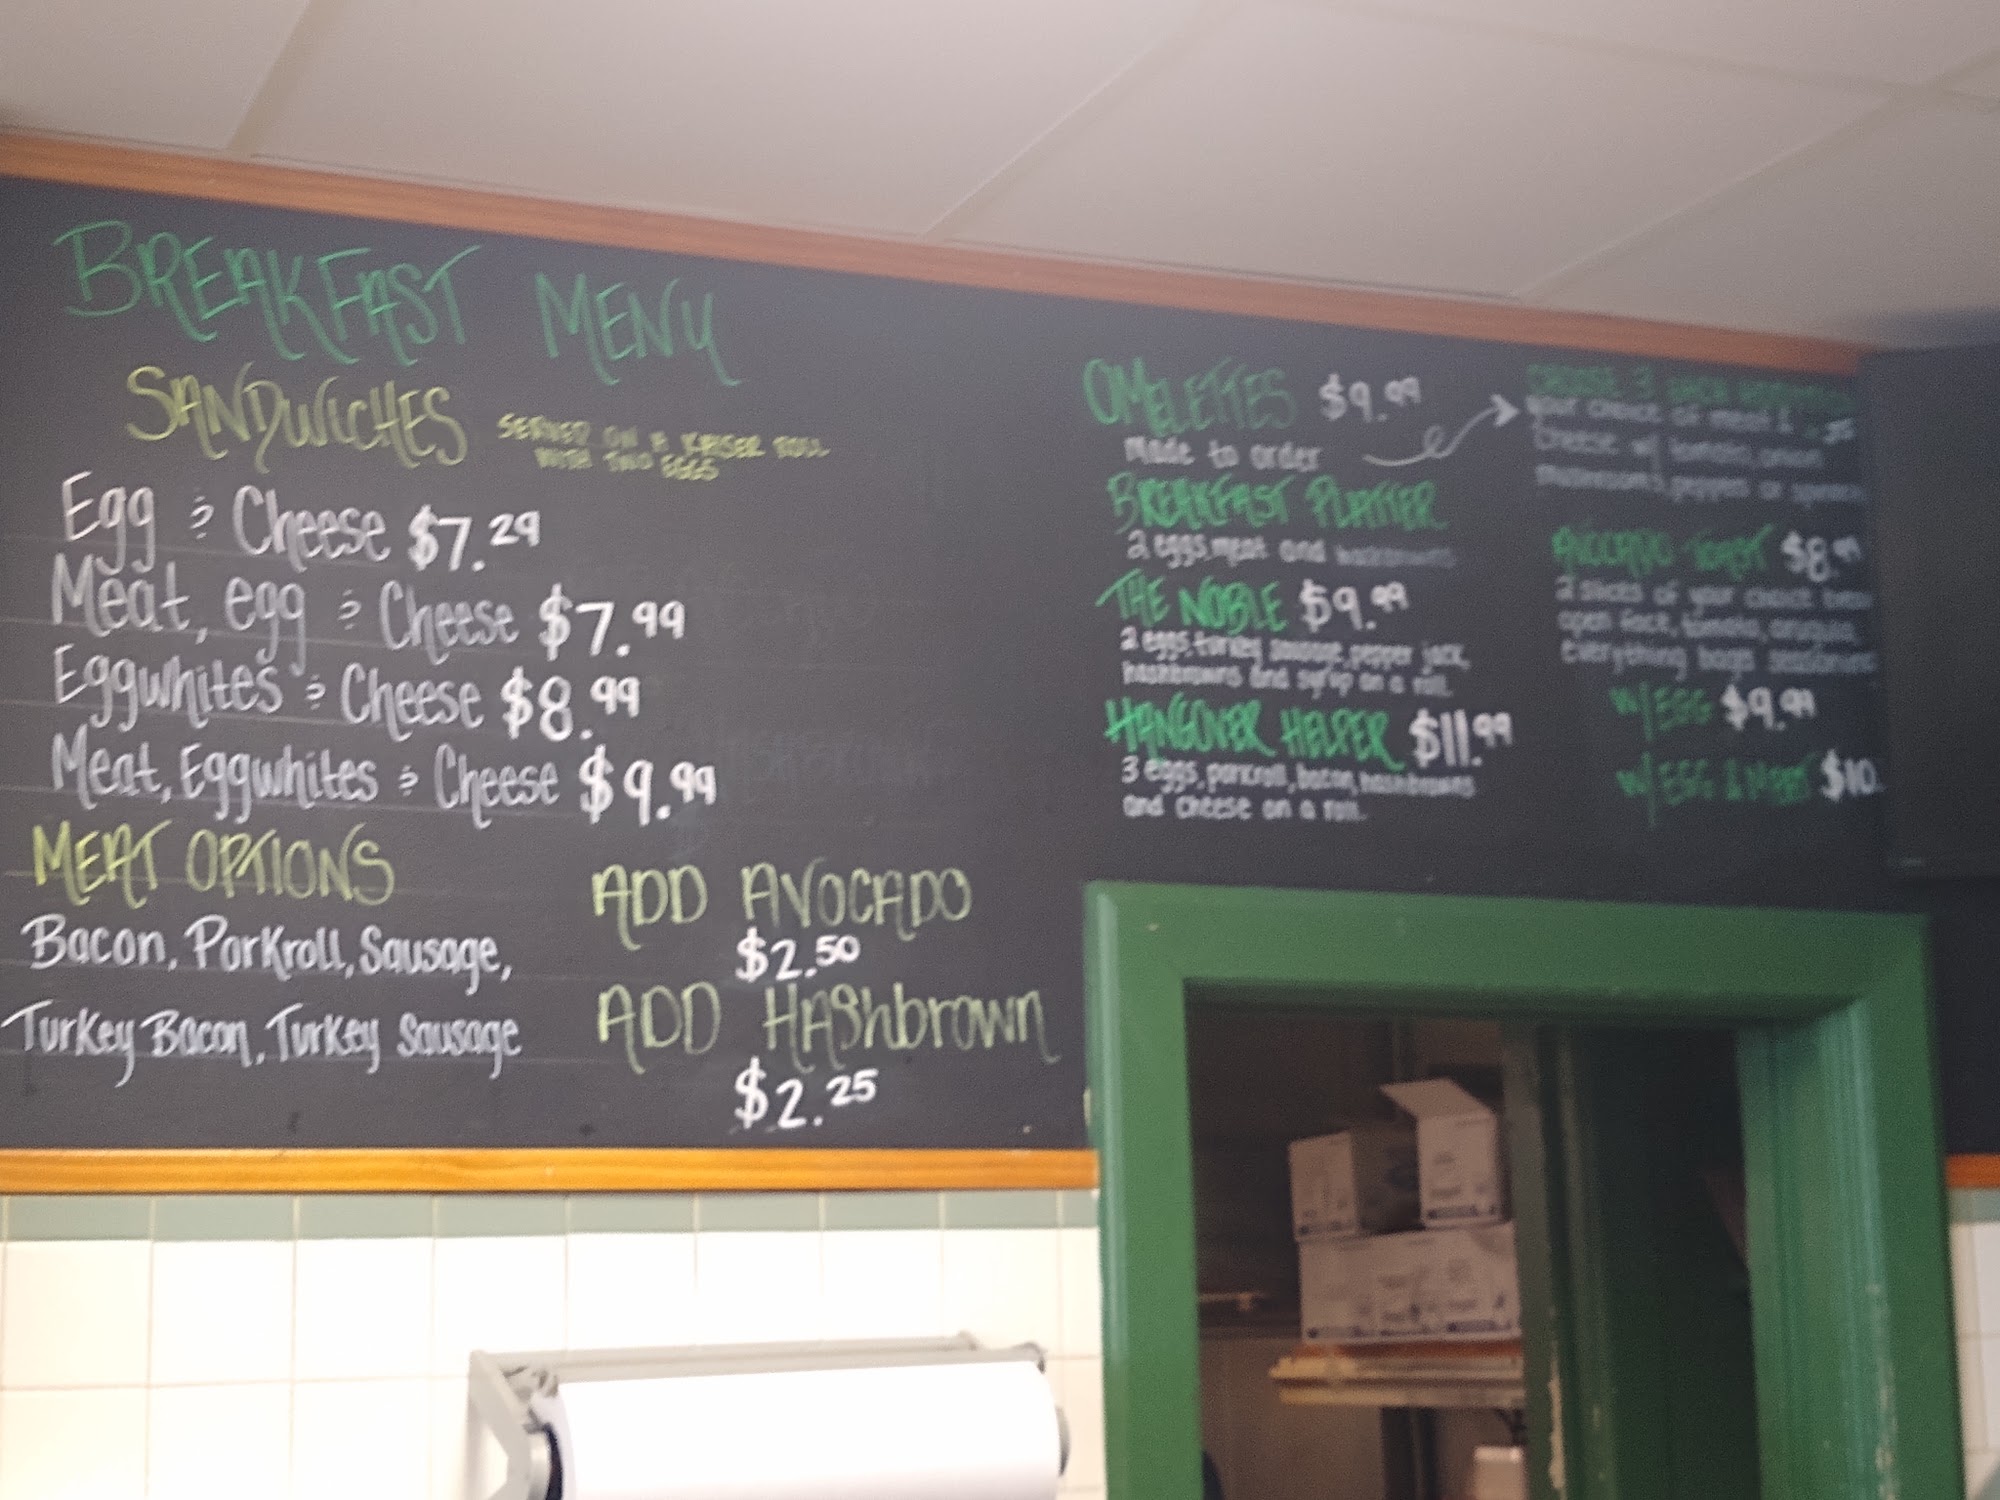 BREAKFAST MENU
SANDWICHES
SERVED ON A KAISER ROLL
WITH TWO EGGS
Egg & Cheese $7.29
Meat, egg & Cheese $7.99
Eggwhites & Cheese $8.99
Meat, Eggwhites & Cheese $9.99
MEAT OPTIONS
Bacon, Porkroll, Sausage,
Turkey Bacon, Turkey Sausage
ADD AVOCADO
$2.50
ADD HAShbrown
$2.25
OMELETTES $9.99
Made to order
BREAKFAST PLATTER
2 eggs, meat and hashbrowns
THE NOBLE $9.99
2 eggs, turkey sausage, pepper jack,
hashbrowns and syrup on a roll.
HANGOVER HELPER $11.99
3 eggs, porkroll, bacon, hashbrowns
and cheese on a roll.
CHOOSE 3
your choice of meat &
Cheese w/ tomato, onion
mushrooms, peppers or
AVOCADO TOAST $8.99
2 slices of your choice
open face, tomato, arugula,
everything bagel seasoning
W/ EGG $9.99
W/ EGG & MEAT $10.